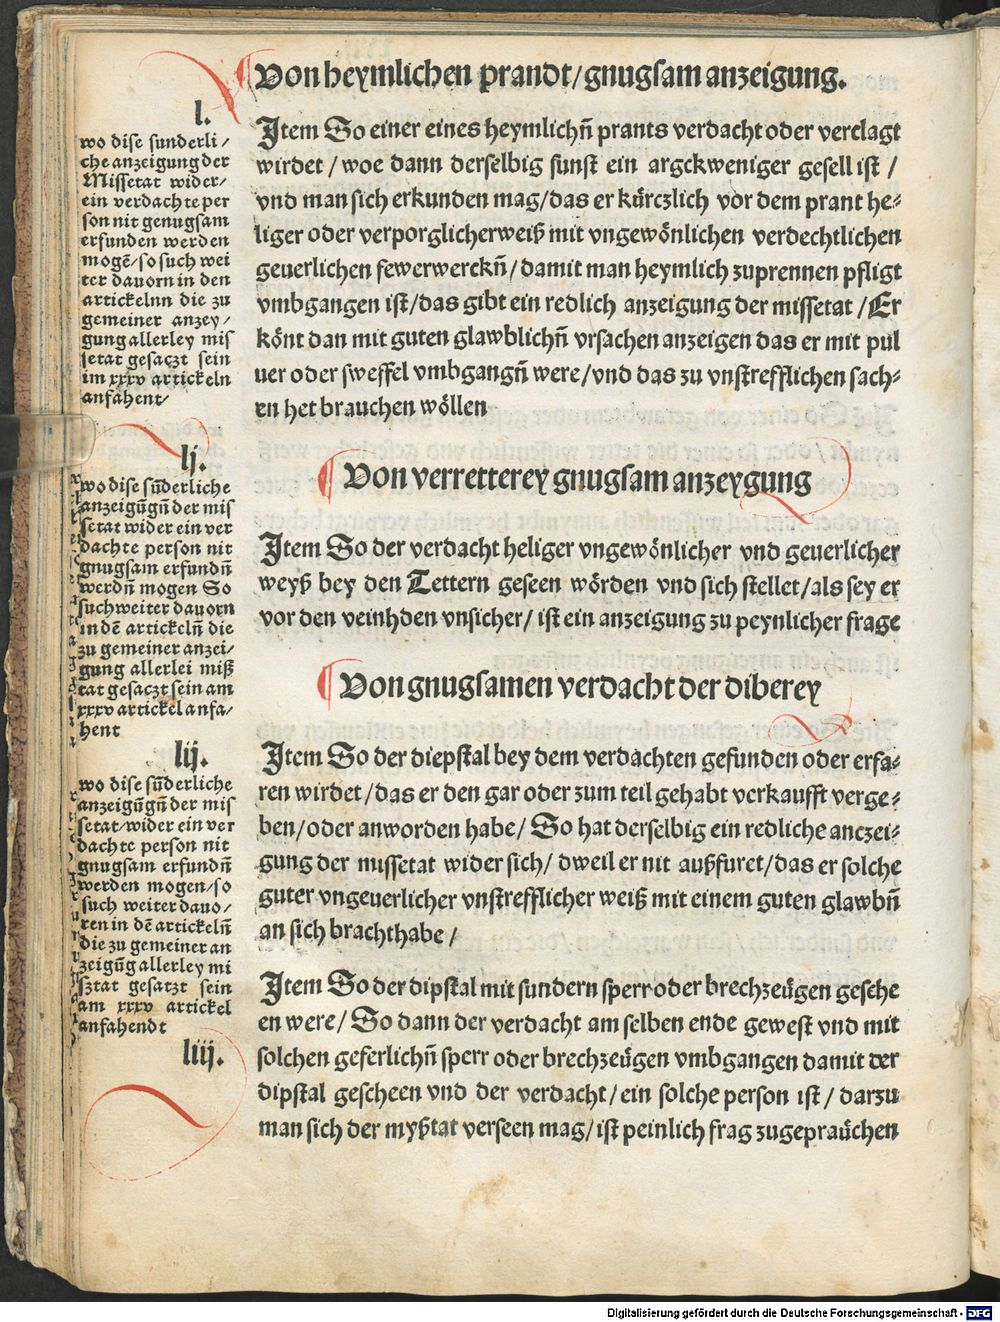 Von heymlichen prandt/gnugsam anzeigung.
l.
wo dise sunderli/
che anzeigung der
Missetat wider/
ein verdachte per
son nit genugsam
erfunden werden
mogē/so such wei
ter dauorn in den
artickelnn die zu
gemeiner anzey/
gung allerley mis
setat gesaczt sein
im xxxv artickeln
anfahent/
Jtem So einer eines heymlichn̄ prants verdacht oder verclagt
wirdet/woe dann derselbig sunst ein argckweniger gesell ist/
vnd man sich erkunden mag/das er kürczlich vor dem prant he⸗
liger oder verporglicherweiß mit vngewönlichen verdechtlichen
geuerlichen fewerwerckn̄/damit man heymlich zuprennen pfligt
vmbgangen ist/das gibt ein redlich anzeigung der missetat/Er
könt dan mit guten glawblichn̄ vrsachen anzeigen das er mit pul
uer oder sweffel vmbgangn̄ were/vnd das zu vnstrefflichen sach⸗
en het brauchen wöllen
Von verretterey gnugsam anzeygung
lj.
wo dise sūderliche
anzeigūgn̄ der mis
setat wider ein ver
dachte person nit
gnugsam erfundn̄
werdn̄ mogen So
such weiter dauorn
in dē artickeln̄ die
zu gemeiner anzei/
gung allerlei miß
tat gesaczt sein am
xxxv artickel anfa/
hent
Jtem So der verdacht heliger vngewönlicher vnd geuerlicher
weyß bey den Tettern geseen wörden vnd sich stellet/als sey er
vor den veinhden vnsicher/ist ein anzeigung zu peynlicher frage
Von gnugsamen verdacht der diberey
lij.
wo dise sūderliche
anzeigūgn̄ der mis
setat/wider ein ver
dachte person nit
gnugsam erfundn̄
werden mogen/so
such weiter dauo/
ren in dē artickeln̄
die zu gemeiner an
zeigūg allerley mi
sztat gesatzt sein
am xxxv artickel
anfahendt
Jtem So der diepstal bey dem verdachten gefunden oder erfa⸗
ren wirdet/das er den gar oder zum teil gehabt verkaufft verge⸗
ben/oder anworden habe/So hat derselbig ein redliche anczei⸗
gung der missetat wider sich/dweil er nit außfuret/das er solche
guter vngeuerlicher vnstrefflicher weiß mit einem guten glawbn̄
an sich bracht habe/
liij.
Jtem So der dipstal mit sundern sperr oder brechzeügen gesche
en were/So dann der verdacht am selben ende gewest vnd mit
solchen geferlichn̄ sperr oder brechzeügen vmbgangen damit der
dipstal gescheen vnd der verdacht/ein solche person ist/darzu
man sich der myßtat verseen mag/ist peinlich frag zugepraüchen
Digitalisierung gefördert durch die Deutsche Forschungsgemeinschaft - DFG